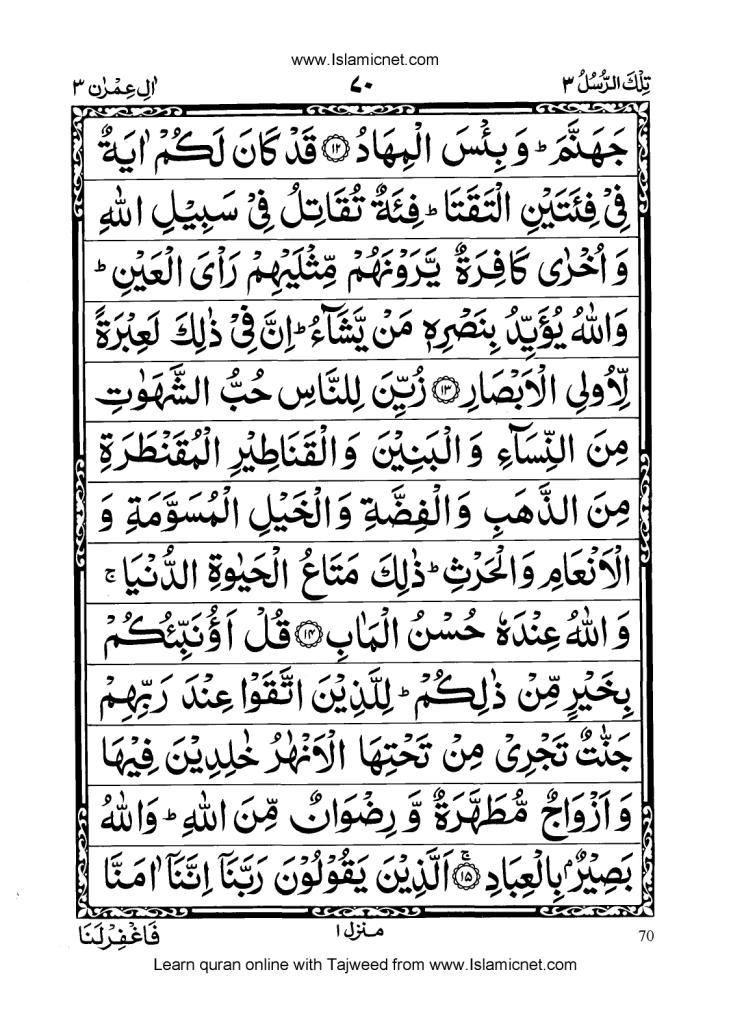 www.Islamicnet.com
تِلْكَ الرُّسُلُ ٣
٧٠
اٰلِ عِمْرٰن ٣
جَهَنَّمَ ؕ وَ بِئْسَ الْمِهَادُ ۝۱۲ قَدْ كَانَ لَكُمْ اٰيَةٌ
فِيْ فِئَتَيْنِ الْتَقَتَا ؕ فِئَةٌ تُقَاتِلُ فِيْ سَبِيْلِ اللّٰهِ
وَ اُخْرٰى كَافِرَةٌ يَّرَوْنَهُمْ مِّثْلَيْهِمْ رَاْيَ الْعَيْنِ ؕ
وَاللّٰهُ يُؤَيِّدُ بِنَصْرِهٖ مَنْ يَّشَآءُ ؕ اِنَّ فِيْ ذٰلِكَ لَعِبْرَةً
لِّاُولِي الْاَبْصَارِ ۝۱۳ زُيِّنَ لِلنَّاسِ حُبُّ الشَّهَوٰتِ
مِنَ النِّسَآءِ وَ الْبَنِيْنَ وَ الْقَنَاطِيْرِ الْمُقَنْطَرَةِ
مِنَ الذَّهَبِ وَ الْفِضَّةِ وَ الْخَيْلِ الْمُسَوَّمَةِ وَ
الْاَنْعَامِ وَ الْحَرْثِ ؕ ذٰلِكَ مَتَاعُ الْحَيٰوةِ الدُّنْيَا ۚ
وَ اللّٰهُ عِنْدَهٗ حُسْنُ الْمَاٰبِ ۝۱۴ قُلْ اَؤُنَبِّئُكُمْ
بِخَيْرٍ مِّنْ ذٰلِكُمْ ؕ لِلَّذِيْنَ اتَّقَوْا عِنْدَ رَبِّهِمْ
جَنّٰتٌ تَجْرِيْ مِنْ تَحْتِهَا الْاَنْهٰرُ خٰلِدِيْنَ فِيْهَا
وَ اَزْوَاجٌ مُّطَهَّرَةٌ وَّ رِضْوَانٌ مِّنَ اللّٰهِ ؕ وَاللّٰهُ
بَصِيْرٌۢ بِالْعِبَادِ ۝۱۵ۚ اَلَّذِيْنَ يَقُوْلُوْنَ رَبَّنَآ اِنَّنَآ اٰمَنَّا
منزل ۱
فَاغْفِرْ لَنَا
70
Learn quran online with Tajweed from www.Islamicnet.com